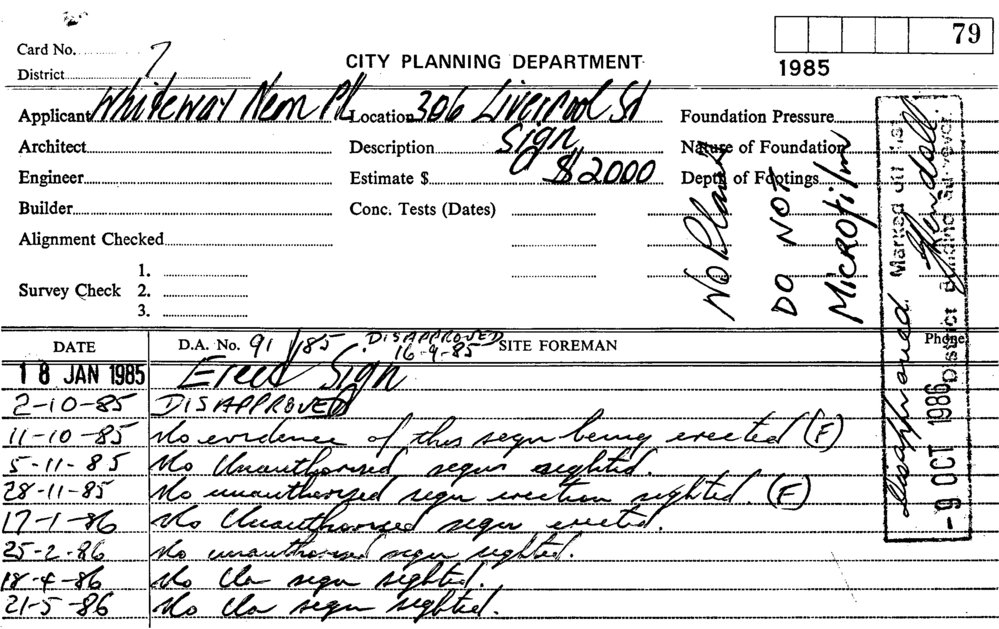 79
Card No. 7
CITY PLANNING DEPARTMENT
1985
District
Applicant Whiteway Neon P/L Location 306 Liverpool St Foundation Pressure
Architect Description Sign Nature of Foundation
Engineer Estimate $ $2000 Depth of Footings
Builder Conc. Tests (Dates)
Alignment Checked
1.
Survey Check 2.
3.
No Plans
DO NOT
MICROFILM
Disapproved Marked off list
Kendall
District Building Surveyor
- 9 OCT 1986
DATE D.A. No. 91/85. DISAPPROVED 16-9-85 SITE FOREMAN Phone
18 JAN 1985 Erect Sign
2-10-85 DISAPPROVED
11-10-85 No evidence of this sign being erected (F)
5-11-85 No Unauthorised sign sighted.
28-11-85 No unauthorised sign erection sighted. (F)
17-1-86 No Unauthorised sign erected.
25-2-86 No unauthorised sign sighted.
18-4-86 No sign sighted.
21-5-86 No sign sighted.